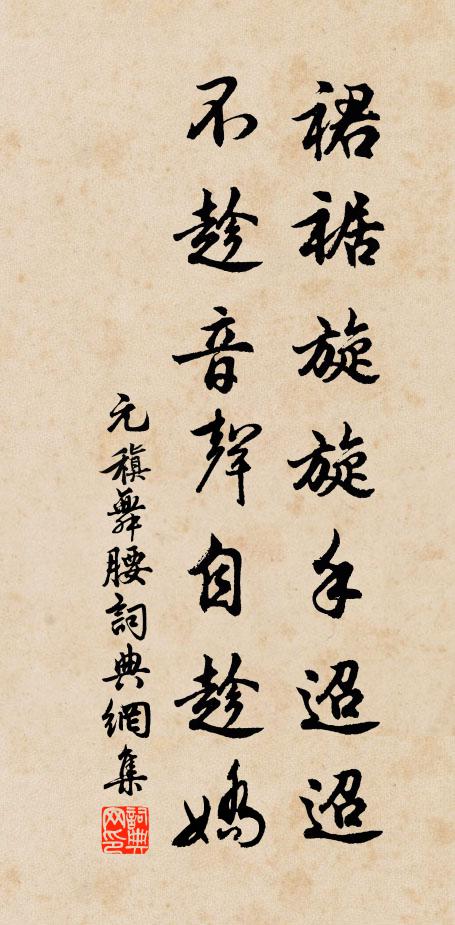 裙裾旋旋手迢迢
不趁音聲自趁嬌
元稹舞腰詞典網集
詞典网印